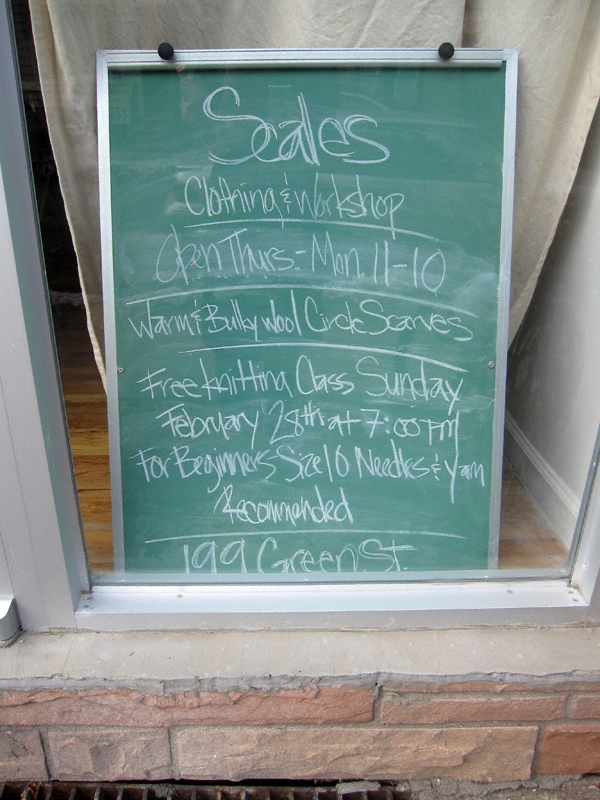 Scales
Clothing & Workshop
Open Thurs - Mon. 11-10
Warm & Bulky wool Circle Scarves
Free Knitting Class Sunday
February 28th at 7:00 PM
For Beginners Size 10 Needles & Yarn
Recommended
199 Green St.